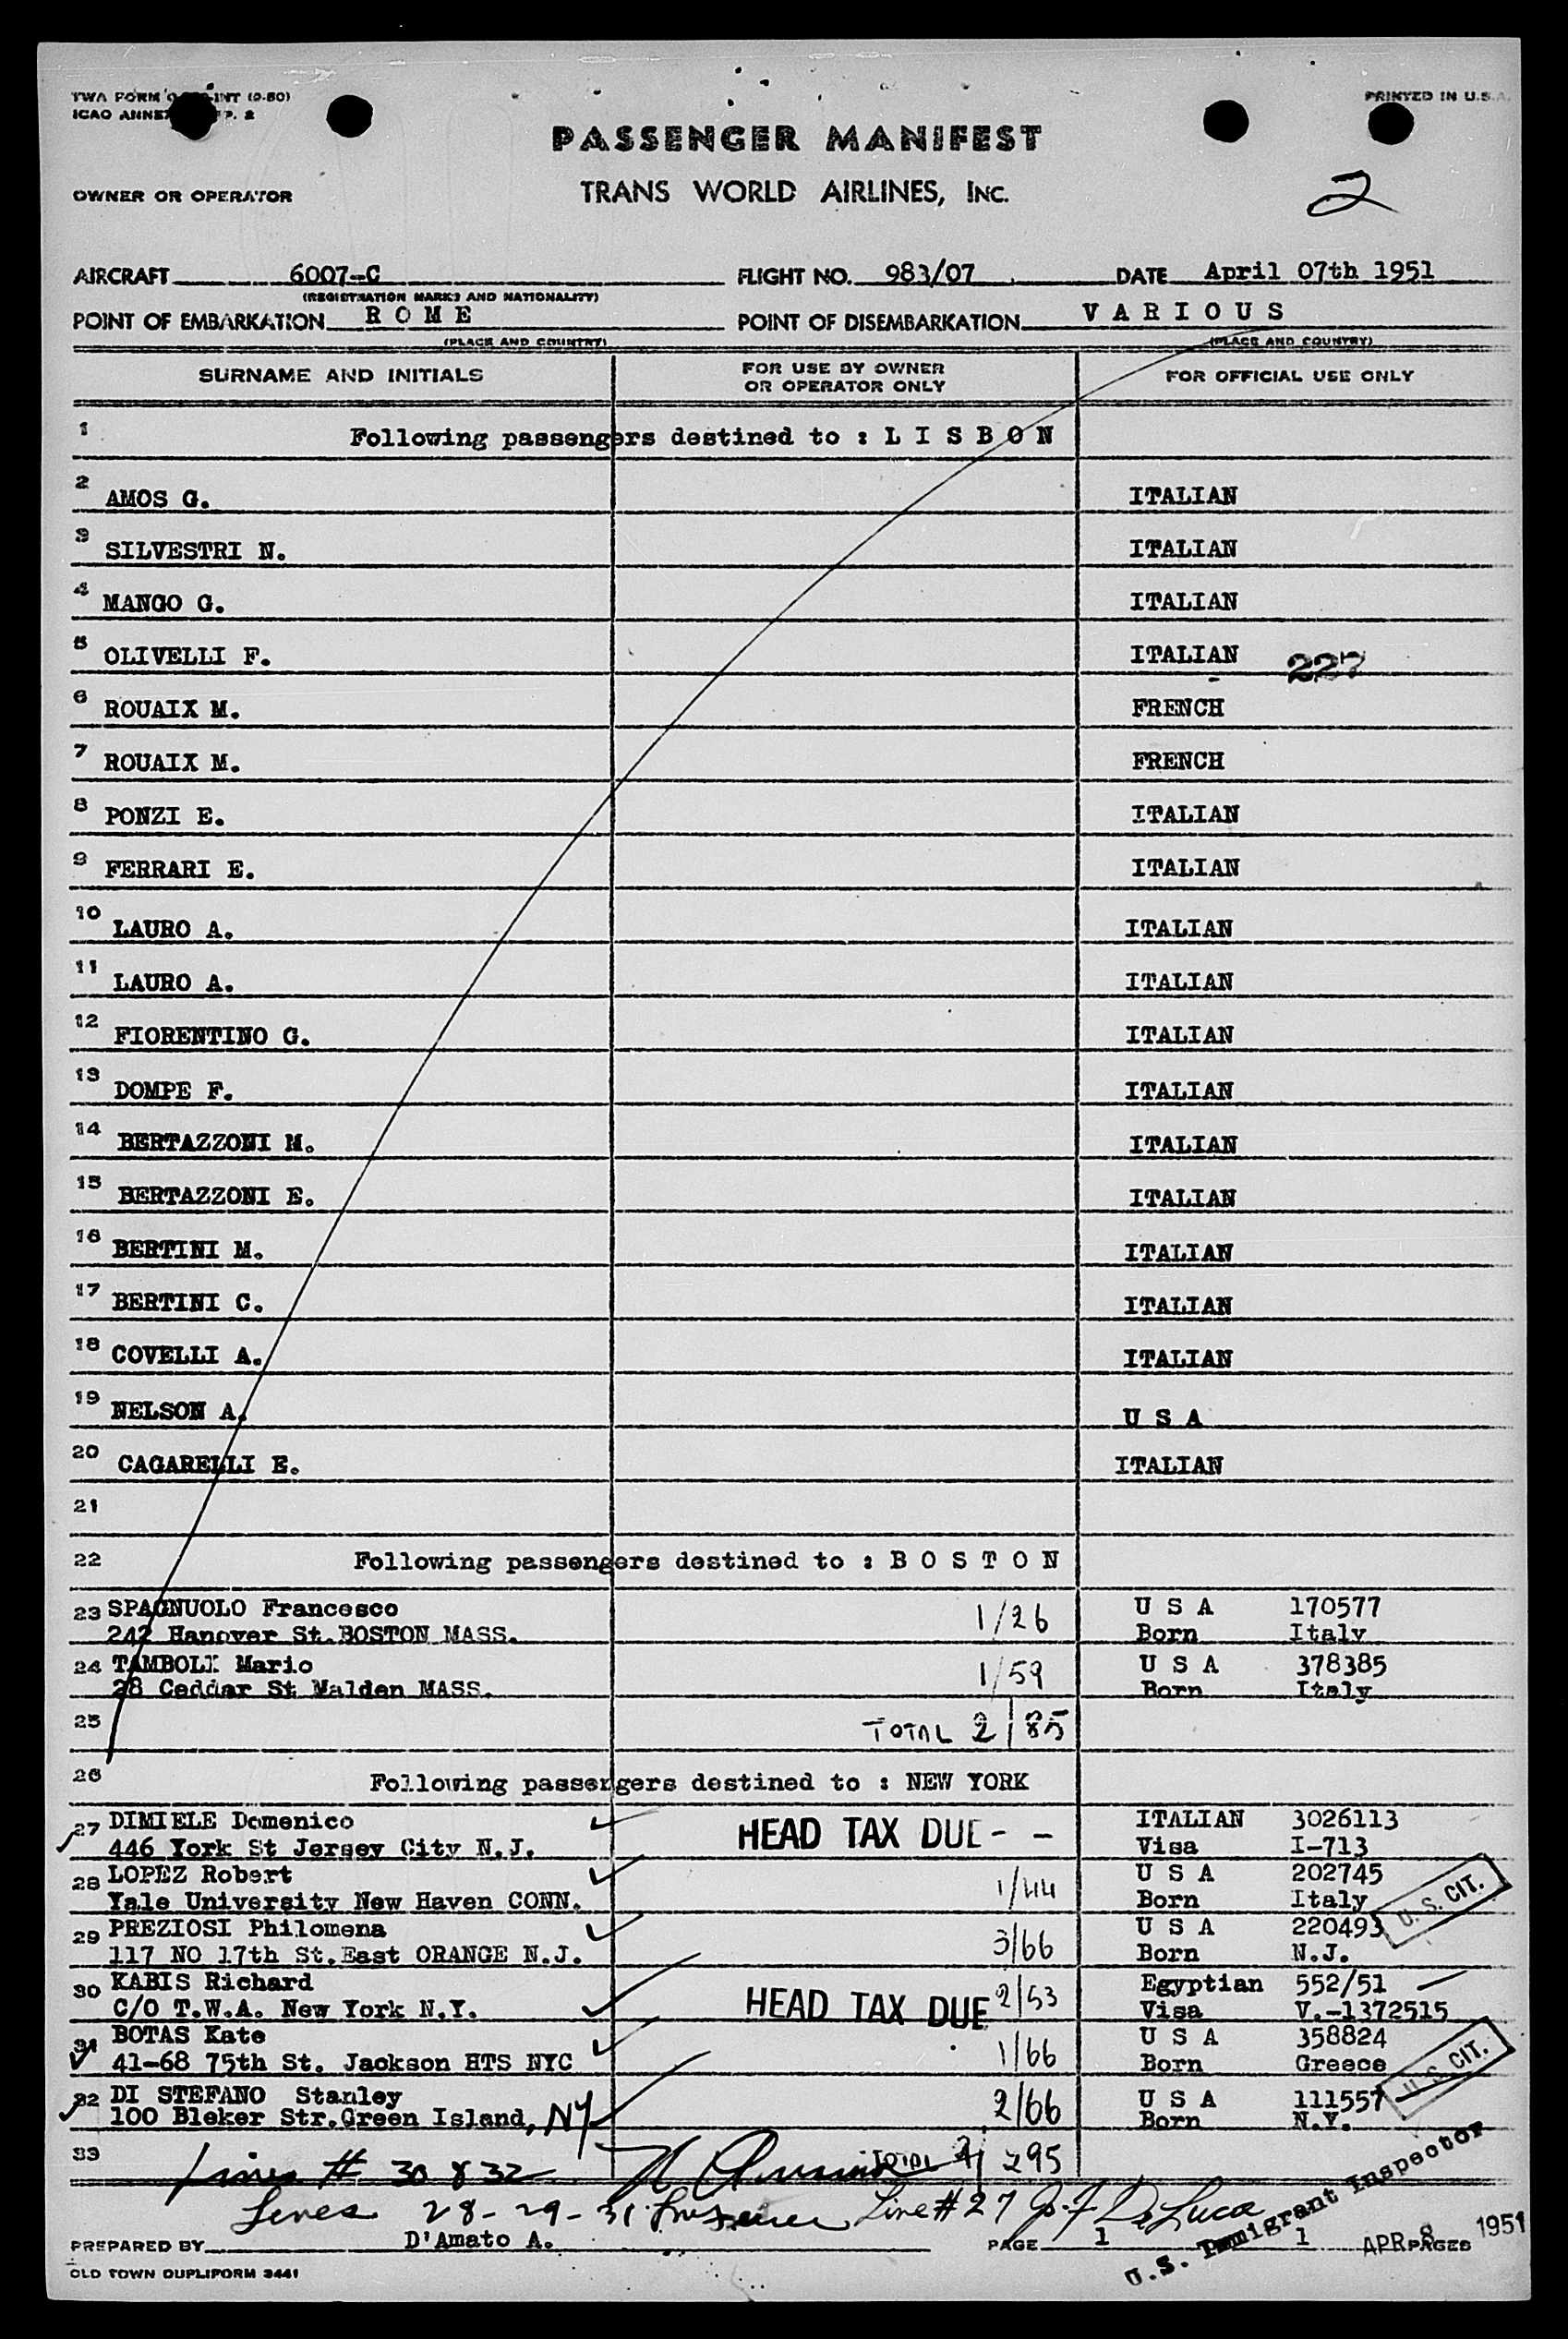 TWA FORM INT (9-50)
PRINTED IN U.S.A.
ICAO ANNEX P. 2
PASSENGER MANIFEST
OWNER OR OPERATOR
TRANS WORLD AIRLINES, INC.
2
AIRCRAFT 6007-C FLIGHT NO. 983/07 DATE April 07th 1951
(REGISTRATION MARKS AND NATIONALITY)
POINT OF EMBARKATION R O M E POINT OF DISEMBARKATION V A R I O U S
(PLACE AND COUNTRY) (PLACE AND COUNTRY)
SURNAME AND INITIALS FOR USE BY OWNER OR OPERATOR ONLY FOR OFFICIAL USE ONLY
1 Following passengers destined to : L I S B O N
2 AMOS G. ITALIAN
3 SILVESTRI N. ITALIAN
4 MANGO G. ITALIAN
5 OLIVELLI F. ITALIAN 227
6 ROUAIX M. FRENCH
7 ROUAIX M. FRENCH
8 PONZI E. ITALIAN
9 FERRARI E. ITALIAN
10 LAURO A. ITALIAN
11 LAURO A. ITALIAN
12 FIORENTINO G. ITALIAN
13 DOMPE F. ITALIAN
14 BERTAZZONI M. ITALIAN
15 BERTAZZONI E. ITALIAN
16 BERTINI M. ITALIAN
17 BERTINI C. ITALIAN
18 COVELLI A. ITALIAN
19 NELSON A. U S A
20 CAGARELLI E. ITALIAN
21
22 Following passengers destined to : B O S T O N
23 SPAGNUOLO Francesco 1/26 U S A 170577
242 Hanover St.BOSTON MASS. Born Italy
24 TAMBOLI Mario 1/59 U S A 378385
28 Ceddar St Malden MASS. Born Italy
25 TOTAL 2/85
26 Following passengers destined to : NEW YORK
27 DIMIELE Domenico HEAD TAX DUE - - ITALIAN 3026113
446 York St Jersey City N.J. Visa I-713
28 LOPEZ Robert 1/44 U S A 202745
Yale University New Haven CONN. Born Italy
U. S. CIT.
29 PREZIOSI Philomena 3/66 U S A 220493
117 NO 17th St.East ORANGE N.J. Born N.J.
30 KABIS Richard HEAD TAX DUE 2/53 Egyptian 552/51
C/O T.W.A. New York N.Y. Visa V.-1372515
31 BOTAS Kate 1/66 U S A 358824
41-68 75th St. Jackson HTS NYC Born Greece
U. S. CIT.
32 DI STEFANO Stanley 2/66 U S A 111557
100 Bleker Str.Green Island, NY Born N.Y.
33 Lines # 30 & 32 TOTAL 295
Lines 28-29-31 Line # 27 J. F. DeLuca
U.S. Immigrant Inspector
PREPARED BY D'Amato A. PAGE 1 1 PAGES
APR 8 1951
OLD TOWN DUPLIFORM 3441